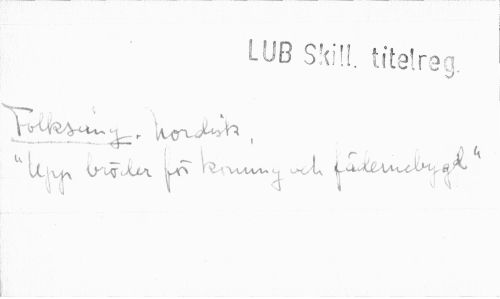 LUB Skill. titelreg.
Folksång. Nordisk,
"Upp bröder för konung och fädernebygd"